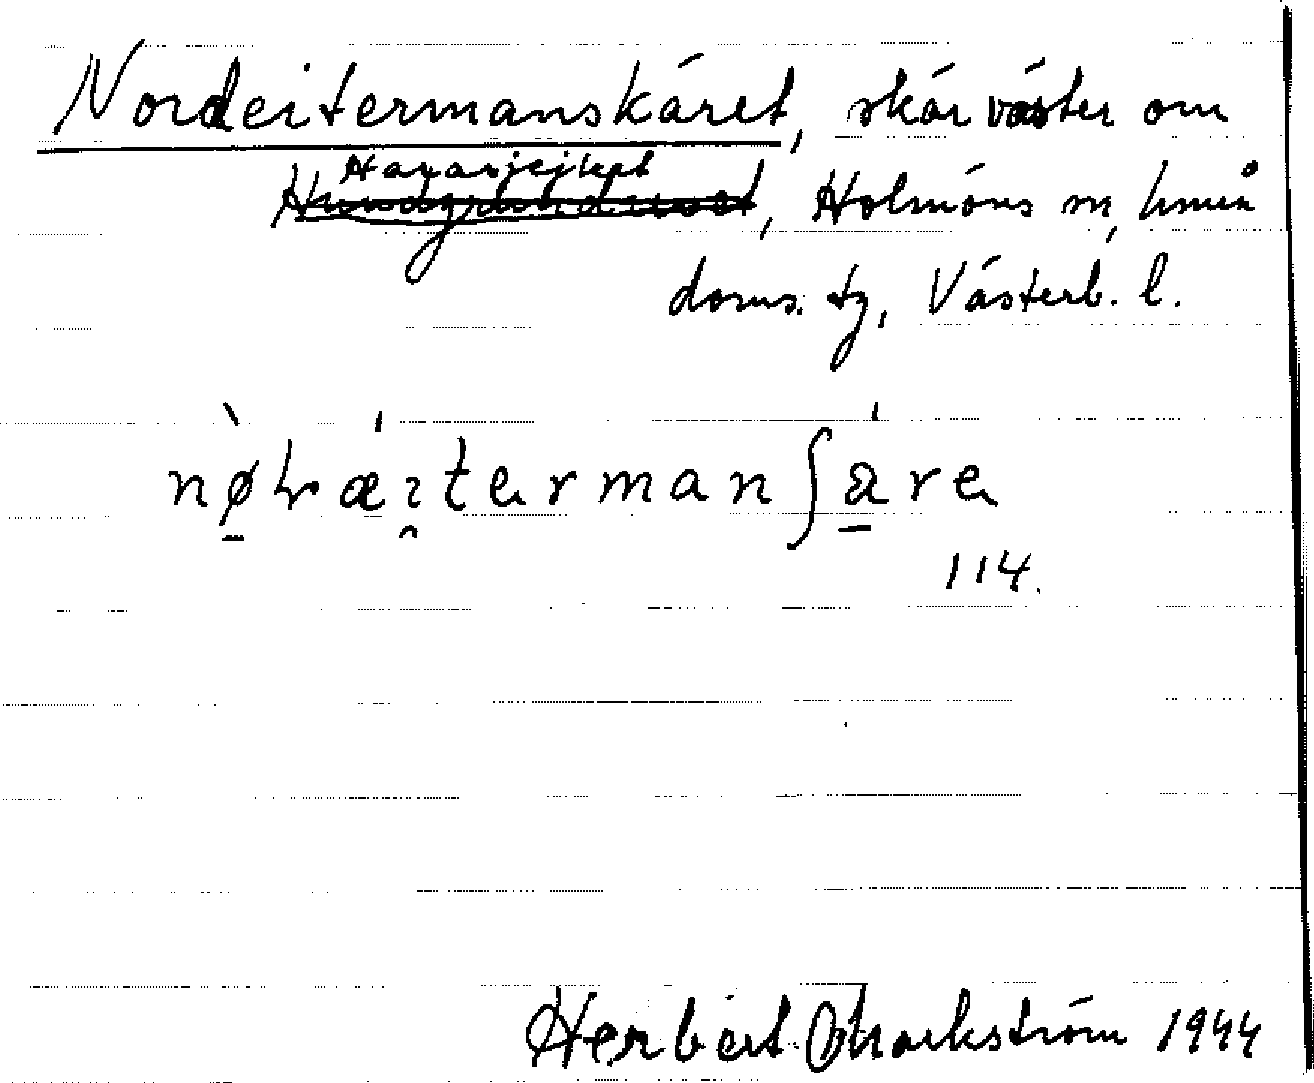 Nordeitermanskäret, skär väster om
Hararjejket
Hundgrunduset, Holmöns sn, Umeå
doms. tg, Västerb. l.
nø̱̀ʰræ̍ı̯terman∫a̱̍re
114.
Herbert Markström 1944